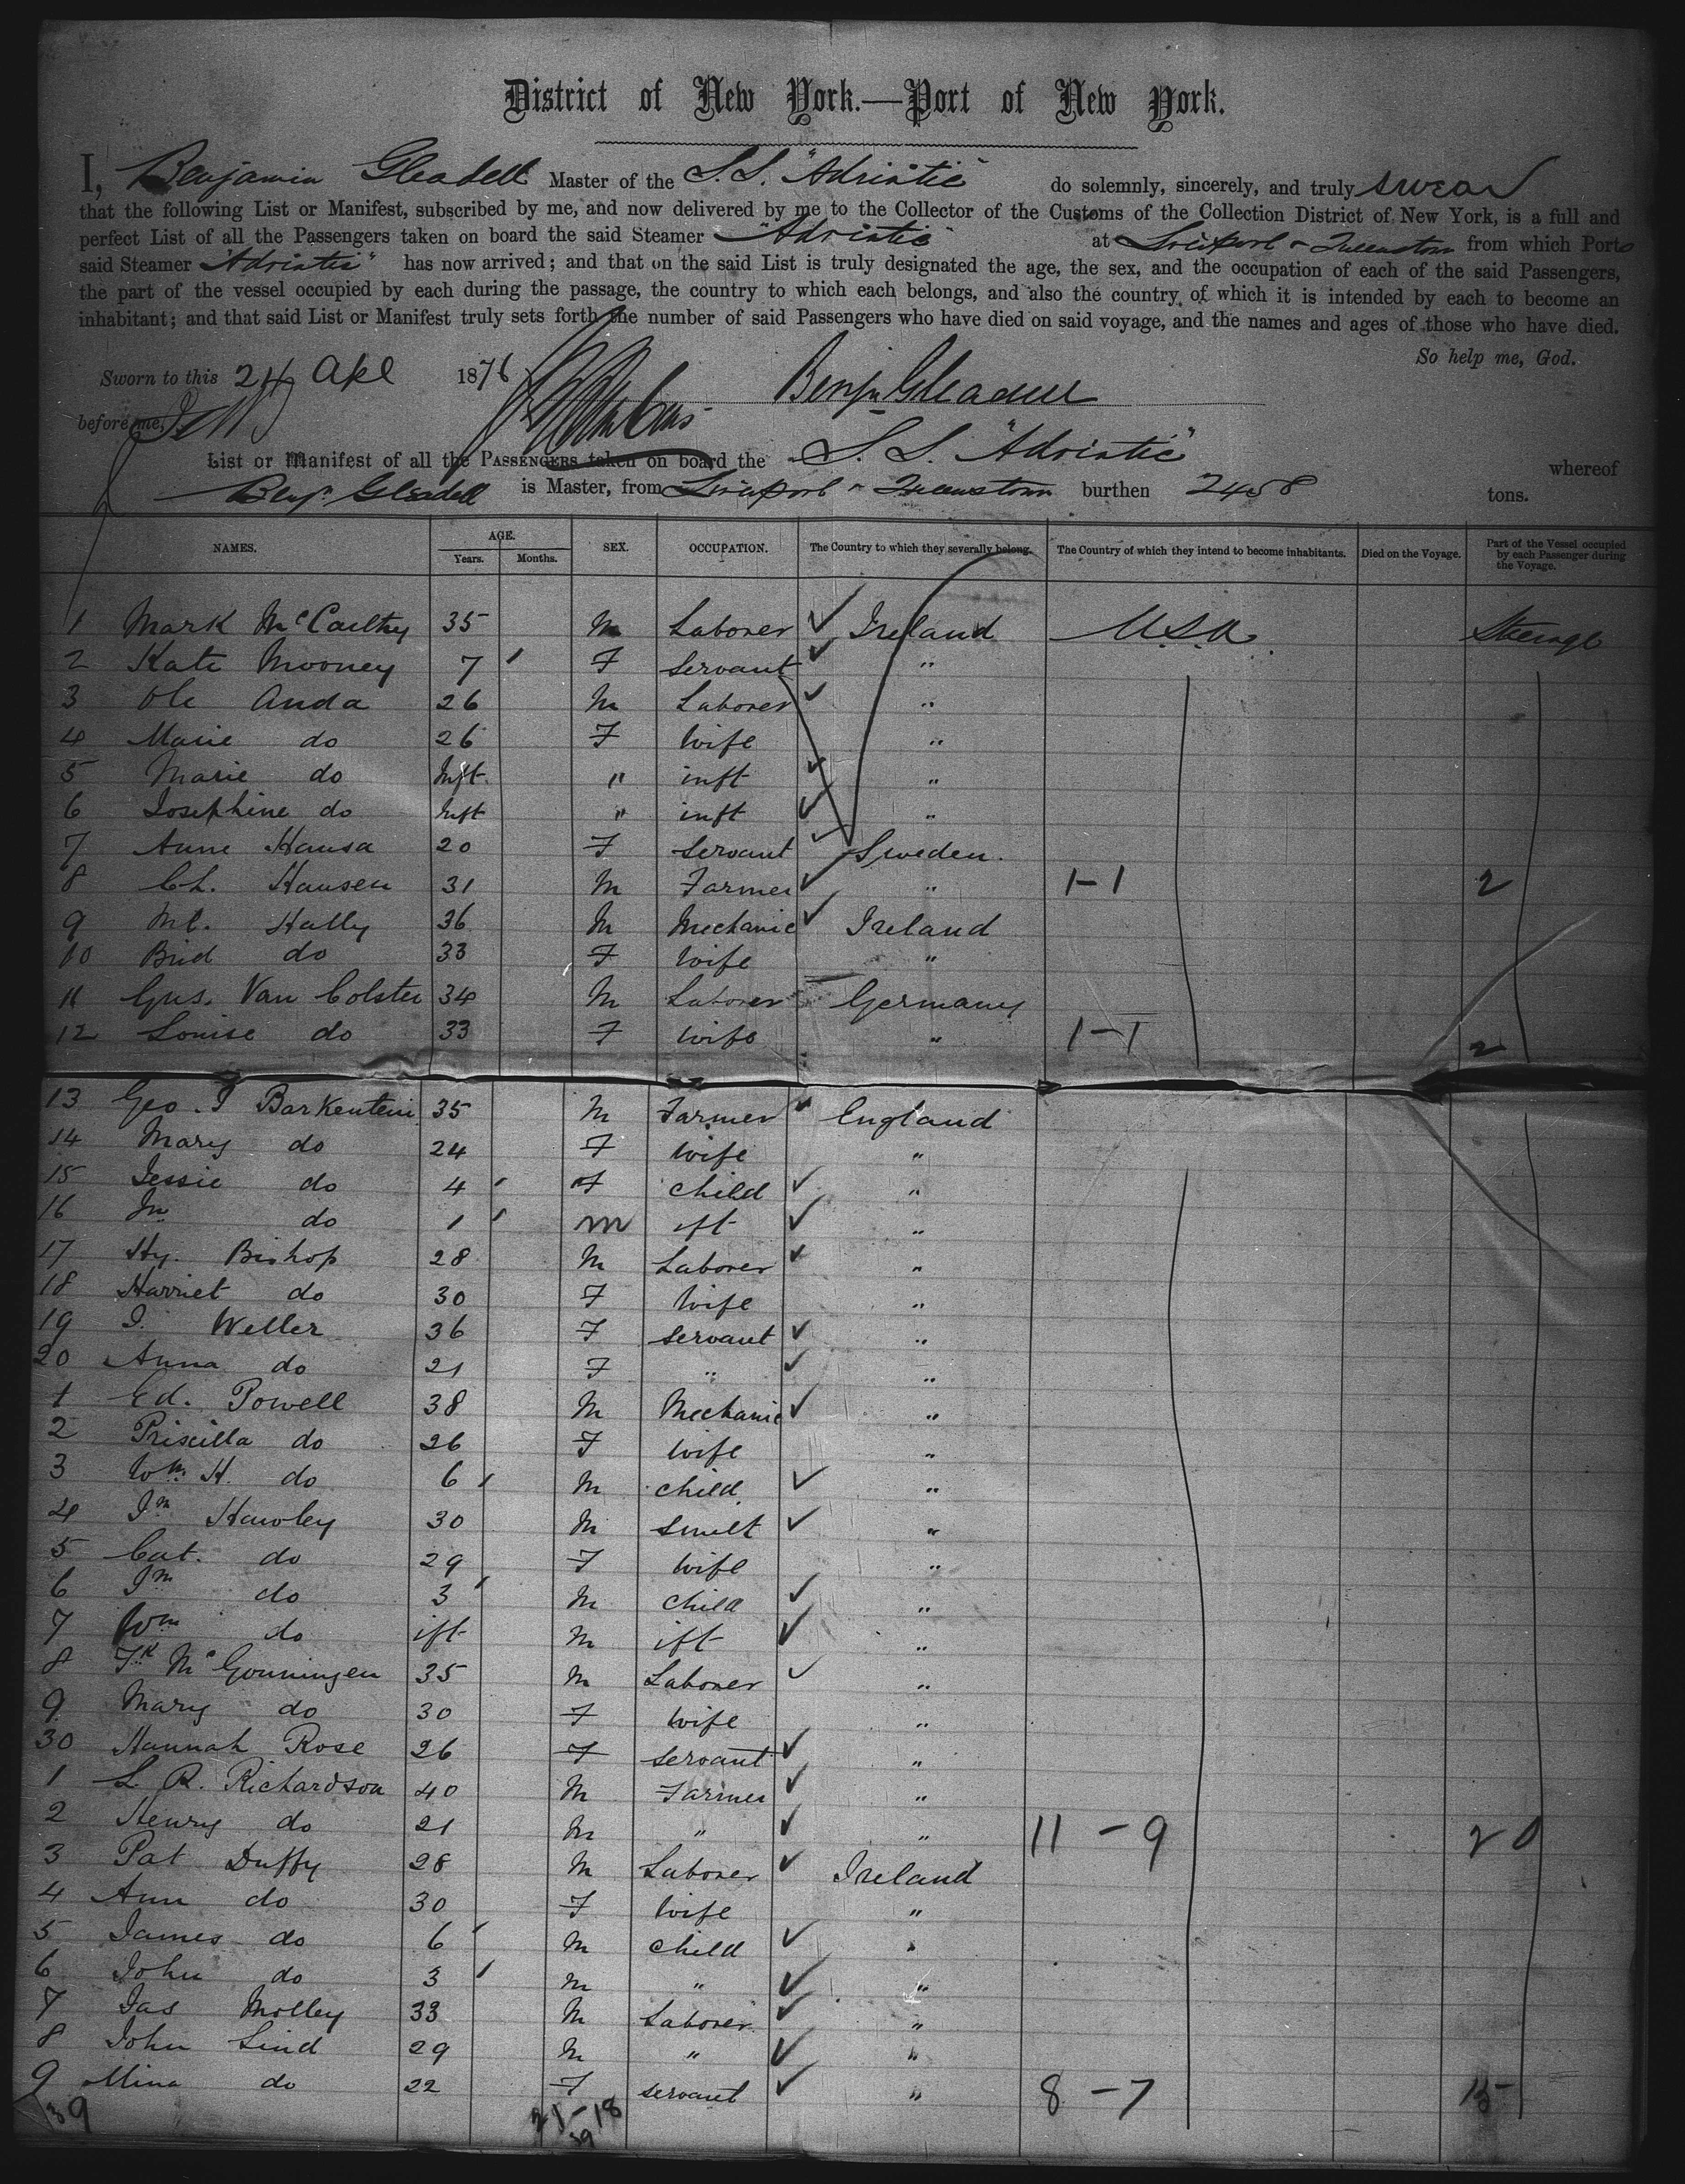 District of New York.—Port of New York.
I, Benjamin Gleadell Master of the S.S. "Adriatic" do solemnly, sincerely, and truly swear
that the following List or Manifest, subscribed by me, and now delivered by me to the Collector of the Customs of the Collection District of New York, is a full and
perfect List of all the Passengers taken on board the said Steamer "Adriatic" at Liverpool & Queenstown from which Ports
said Steamer "Adriatic" has now arrived; and that on the said List is truly designated the age, the sex, and the occupation of each of the said Passengers,
the part of the vessel occupied by each during the passage, the country to which each belongs, and also the country of which it is intended by each to become an
inhabitant; and that said List or Manifest truly sets forth the number of said Passengers who have died on said voyage, and the names and ages of those who have died.
So help me, God.
Sworn to this 24 Apl 1876 Benjn Gleadell
before me,
List or Manifest of all the PASSENGERS taken on board the S.S. "Adriatic" whereof
Benjn Gleadell is Master, from Liverpool & Queenstown burthen 2458 tons.
NAMES. AGE. Years. Months. SEX. OCCUPATION. The Country to which they severally belong. The Country of which they intend to become inhabitants. Died on the Voyage. Part of the Vessel occupied by each Passenger during the Voyage.
1 Mark McCarthy 35 M Laborer Ireland U.S.A. Steerage
2 Kate Mooney 7 F Servant "
3 Ole Anda 26 M Laborer "
4 Marie do 26 F Wife "
5 Marie do Inft. " inft "
6 Josephine do Inft " inft "
7 Anne Hansa 20 F Servant Sweden.
8 Ch. Hansen 31 M Farmer " 1-1 2
9 Ml. Hally 36 M Mechanic Ireland
10 Brid do 33 F Wife "
11 Gus. Van Colster 34 M Laborer Germany
12 Louise do 33 F Wife " 1-1 2
13 Geo. J Barkentein 35 M Farmer England
14 Mary do 24 F Wife "
15 Jessie do 4 F Child "
16 Jn do 1 M ift "
17 Hy. Bishop 28 M Laborer "
18 Harriet do 30 F Wife "
19 J. Weller 36 F Servant "
20 Anna do 21 F " "
1 Ed. Powell 38 M Mechanic "
2 Priscilla do 26 F Wife "
3 Wm. H. do 6 M Child "
4 Jn Hawley 30 M Smelt "
5 Cat. do 29 F Wife "
6 Jn do 3 M Child "
7 Wm do ift M ift "
8 Fk McGonningen 35 M Laborer "
9 Mary do 30 F Wife "
30 Hannah Rose 26 F Servant "
1 L. R. Richardson 40 M Farmer "
2 Henry do 21 M " " 11-9 20
3 Pat Duffy 28 M Laborer Ireland
4 Ann do 30 F Wife "
5 James do 6 M Child "
6 John do 3 M " "
7 Jas Molley 33 M Laborer "
8 John Lind 29 M " "
9 Mina do 22 F Servant " 8-7 15
39 21-18
39